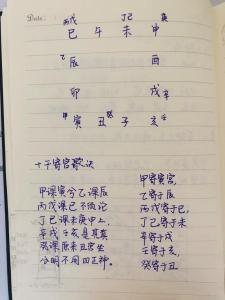 Date:
丙戊 丁己 庚
巳 午 未 申
乙辰 酉
卯 戌辛
甲寅 丑癸 子 亥壬
十干寄宫歌诀
甲课寅兮乙课辰
丙戊课巳不须论
丁己课未庚申上
辛戌壬亥是其真
癸课原来丑宫坐
分明不用四正神。
甲寄寅宫,
乙寄于辰
丙戊寄于巳,
丁己寄于未
辛寄于戌
壬寄于亥,
癸寄于丑